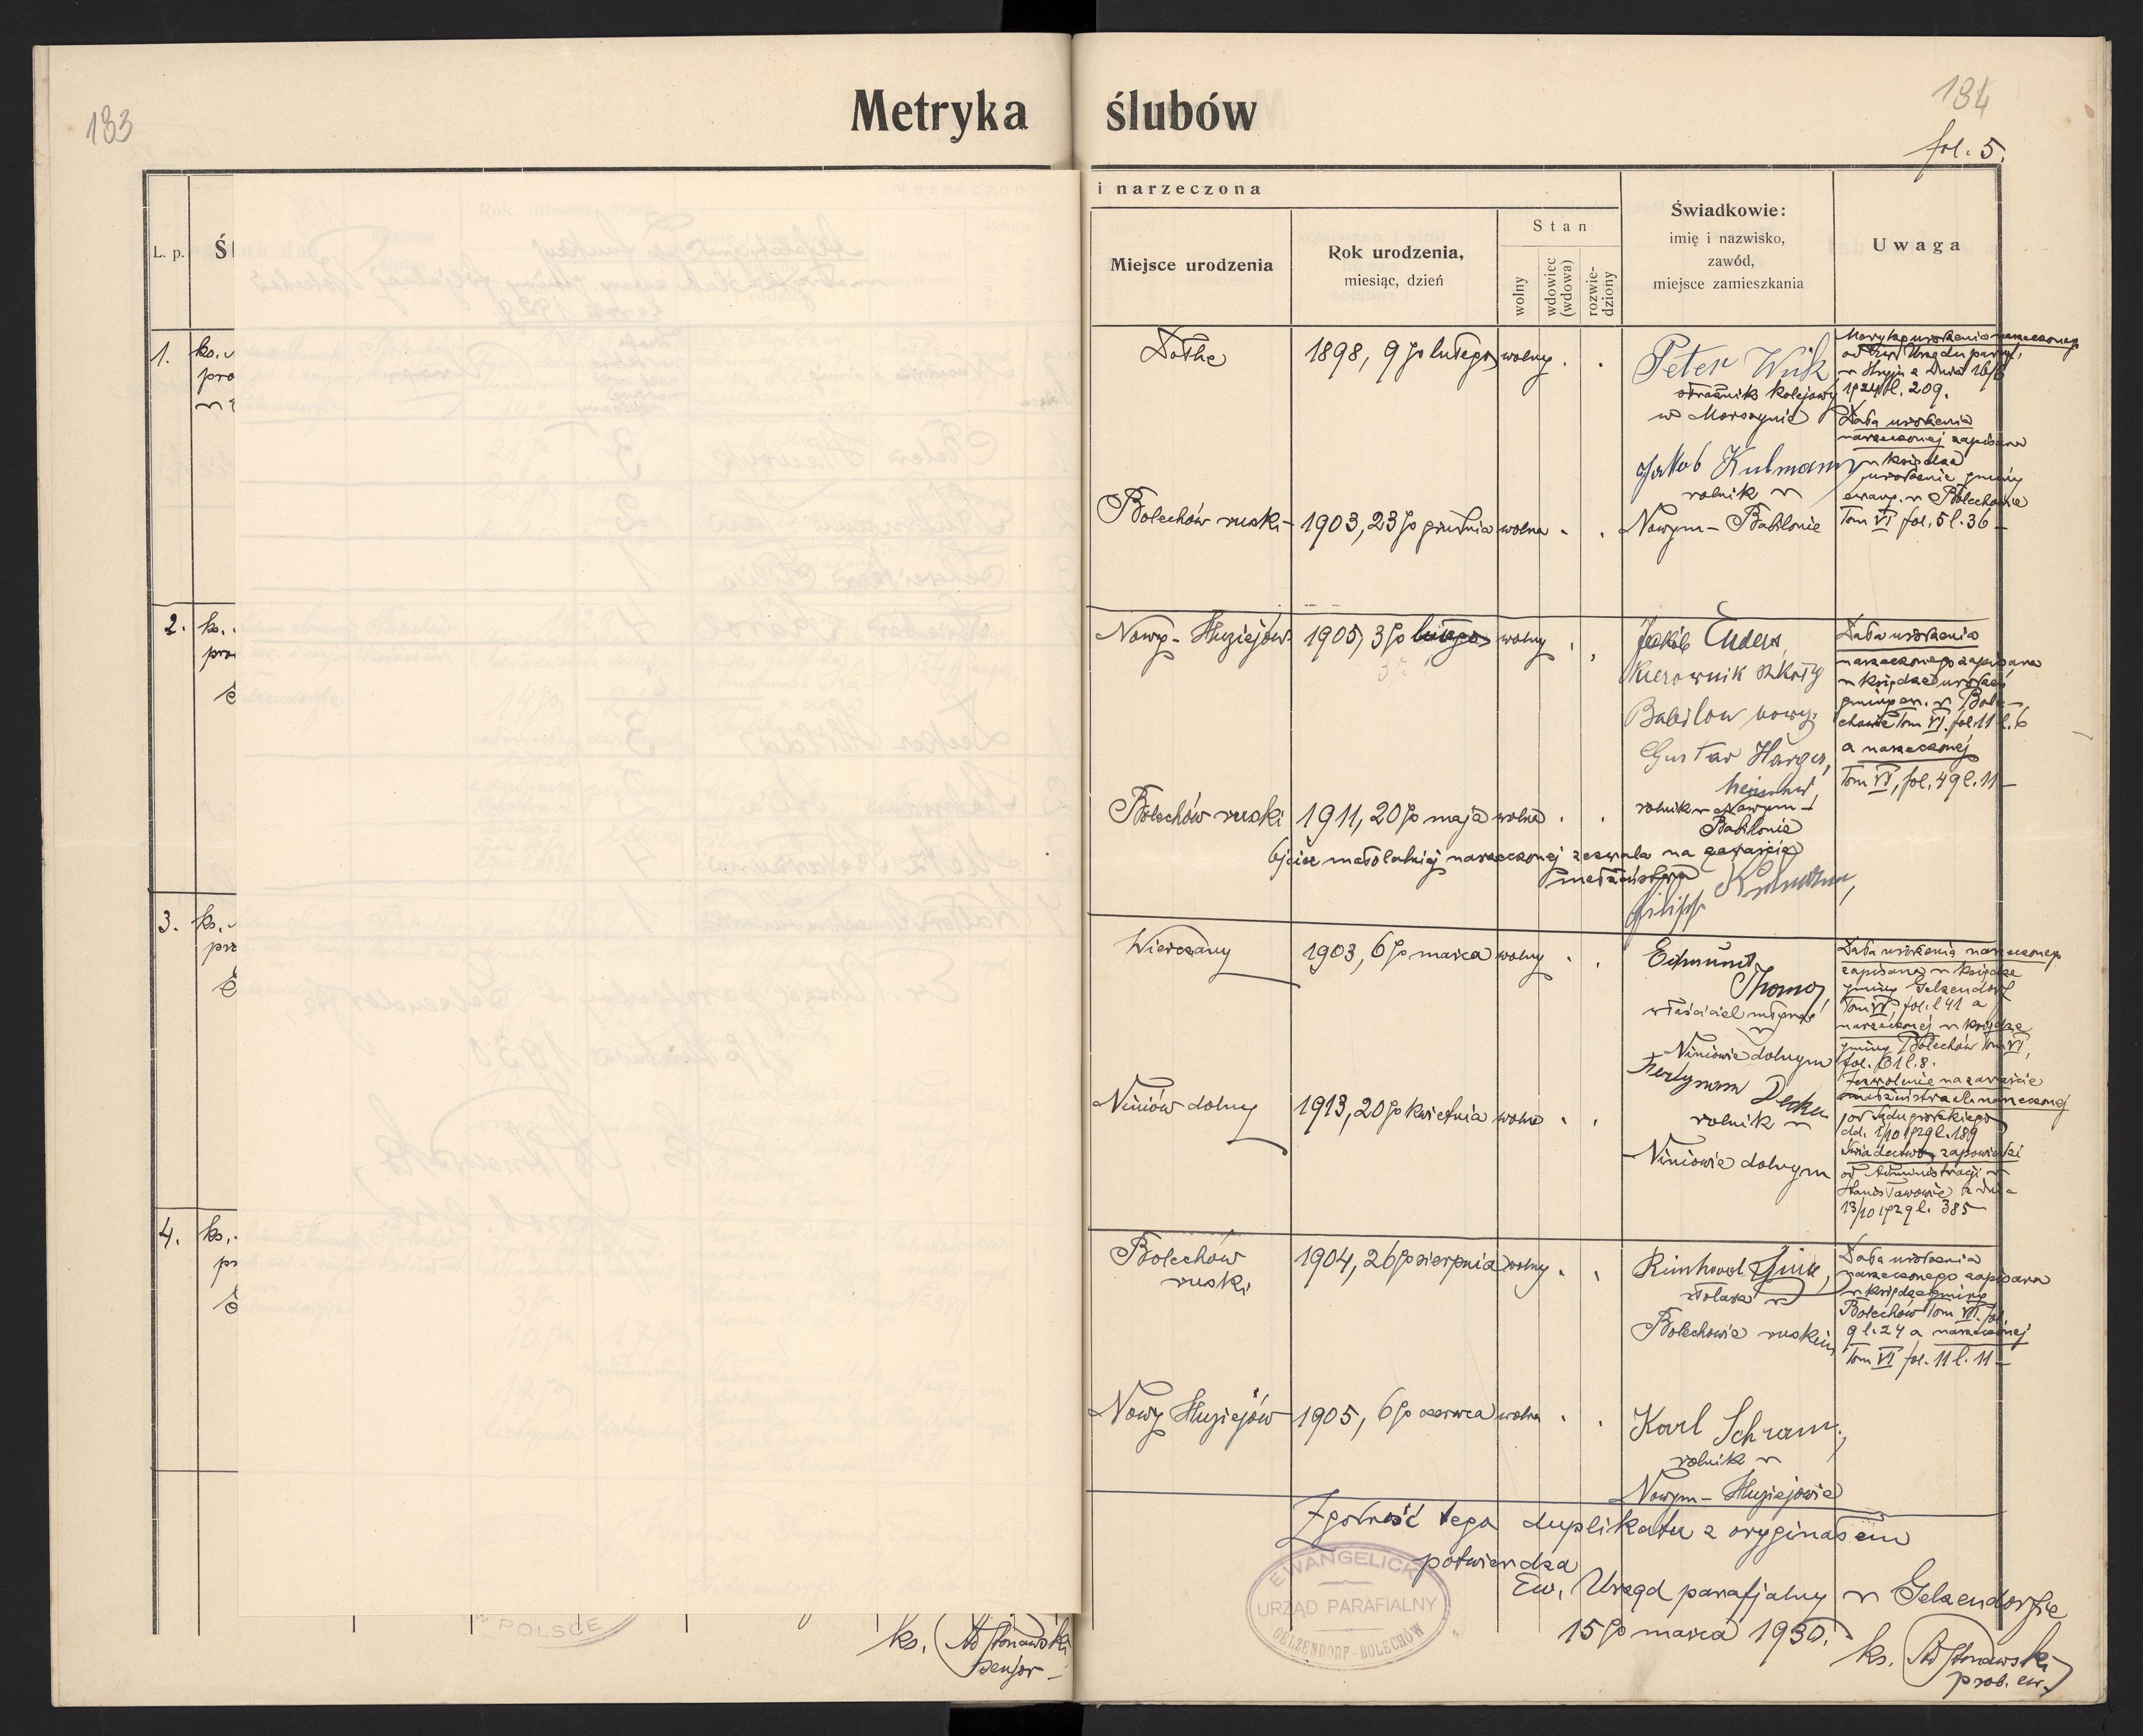 133
Metryka ślubów
134
fol. 5.
L. p.
Ś
i narzeczona
Miejsce urodzenia
Rok urodzenia,
miesiąc, dzień
Stan
wolny
wdowiec
(wdowa)
rozwie-
dziony
Świadkowie:
imię i nazwisko,
zawód,
miejsce zamieszkania
Uwaga
1.
ks.
pro
Dolhe
1898, 9go lutego
wolny
Peter Wik
strażnik kolejowy
w Morszynie
Metryka urodzenia narzeczonego
od Ew. Urzędu paraf.
w Stryju z dnia 16/6
1924 l. 209.
Jakob Kulmann
rolnik w
Nowym-Babilonie
Data urodzenia
narzeczonej zapisana
w księdze
urodzenia gminy
ewang. w Bolechowie
Tom VI fol. 5 l. 36 -
Bolechów ruski
1903, 23go grudnia
wolna
2.
ks.
pro
Nowy-Huziejów
1905, 3go lutego
wolny
Jakob Enders,
Kierownik szkoły
Babilon nowy.
Gustav Harger,
rolnik w Nowym-
Babilonie
Data urodzenia
narzeczonego zapisana
w księdze urodzeń
gminy ew. w Bole-
chowie Tom VI. fol. 11 l. 6
a narzeczonej
Tom VI, fol. 49 l. 11 -
Bolechów ruski
1911, 20go maja
wolna
Ojciec małoletniej narzeczonej zezwala na zawarcie
małżeństwa
Filipp Kulmann,
3.
ks.
prz
Wierczany
1903, 6go marca
wolny
Edmund
Thomas,
właściciel młyna w
Niniowie dolnym
Ferdynand Decker
rolnik w
Niniowie dolnym
Data urodzenia narzeczonego
zapisana w księdze
gminy Gelsendorf
Tom VI, fol. l 41 a
narzeczonej w księdze
gminy Bolechów Tom VI,
fol. 61 l. 8.
Zezwolenie na zawarcie
małżeństwa dla narzeczonej
od Sądu grodzkiego
dd. 1/10 1929 l. 189
Świadectwo zapowiedzi
od Administracji w
Stanisławowie z dnia
13/10 1929 l. 385 -
Niniów dolny
1913, 20go kwietnia
wolna
4.
ks.
pr
Bolechów
ruski
1904, 26go sierpnia
wolny
stolarz w
Bolechowie ruskim
Data urodzenia
narzeczonego zapisana
w księdze gminy
Bolechów Tom VI. fol.
9 l. 24 a narzeczonej
Tom VI fol. 11 l. 11 -
Nowy Huziejów
1905, 6go czerwca
wolna
Karl Schram,
rolnik w
Nowym-Huziejowie
Zgodność tego duplikatu z oryginałem
potwierdza
Ew. Urząd parafjalny w Gelsendorfie
15go marca 1930.
EWANGELICKI
URZĄD PARAFIALNY
GELZENDORF-BOLECHÓW
W POLSCE
ks.
senjor -
ks.
prob. ew.